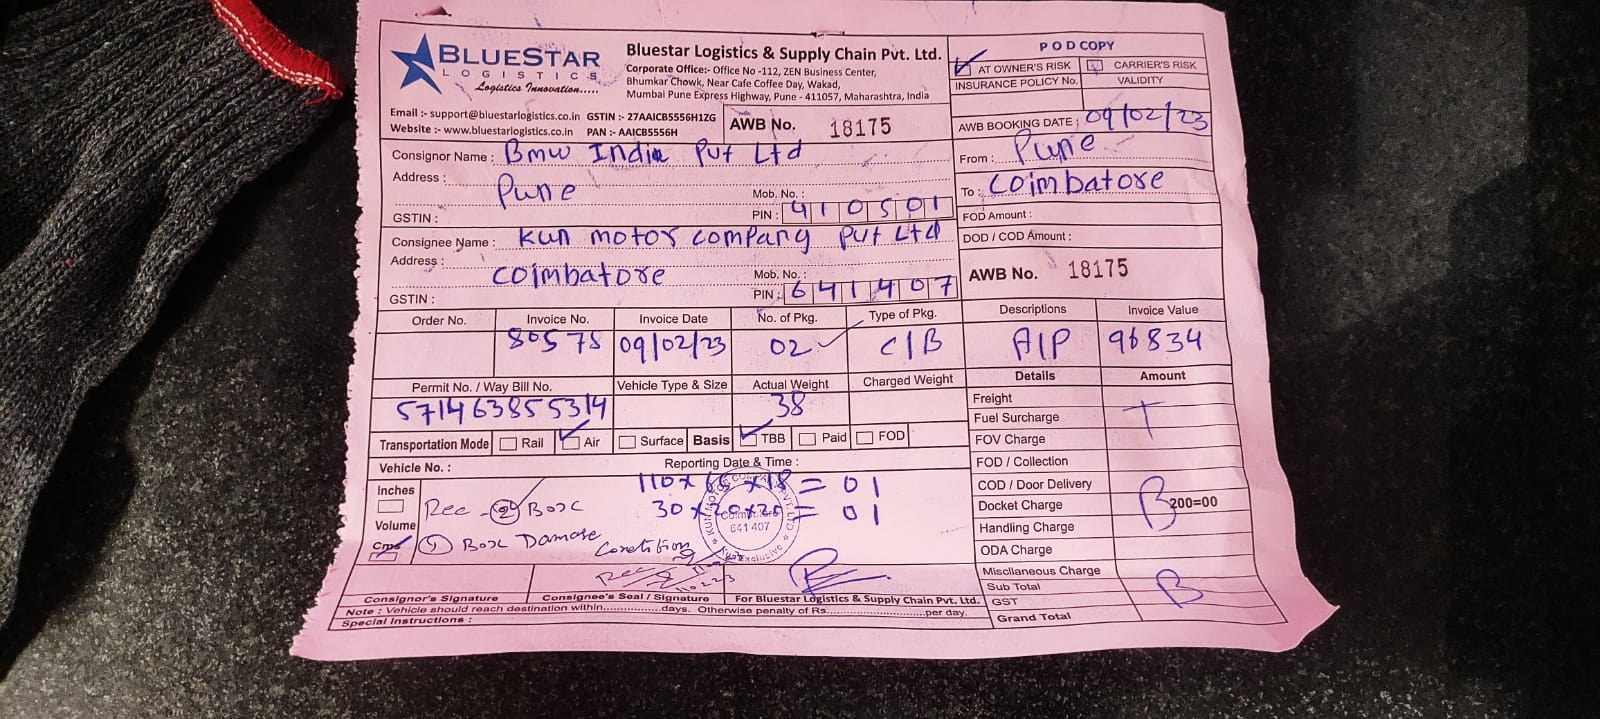 BLUESTAR
LOGISTICS
Logistics Innovation.....
Bluestar Logistics & Supply Chain Pvt. Ltd.
Corporate Office:- Office No -112, ZEN Business Center,
Bhumkar Chowk, Near Cafe Coffee Day, Wakad,
Mumbai Pune Express Highway, Pune - 411057, Maharashtra, India
POD COPY
AT OWNER'S RISK CARRIER'S RISK
INSURANCE POLICY No. VALIDITY
Email :- support@bluestarlogistics.co.in GSTIN :- 27AAICB5556H1ZG
Website :- www.bluestarlogistics.co.in PAN :- AAICB5556H
AWB No. 18175
AWB BOOKING DATE : 09/02/23
Consignor Name : Bmw India Pvt Ltd
From : Pune
Address : Pune
Mob. No. :
To : Coimbatore
GSTIN :
PIN : 410501
FOD Amount :
Consignee Name : Kun motor company Pvt Ltd
DOD / COD Amount :
Address : Coimbatore
Mob. No. :
AWB No. 18175
GSTIN :
PIN : 641407
Order No. Invoice No. Invoice Date No. of Pkg. Type of Pkg. Descriptions Invoice Value
80575 09/02/23 02 C/B A/P 96834
Permit No. / Way Bill No. Vehicle Type & Size Actual Weight Charged Weight Details Amount
571463855314 38
Freight
Fuel Surcharge T
Transportation Mode Rail Air Surface Basis TBB Paid FOD
FOV Charge
Vehicle No. : Reporting Date & Time :
FOD / Collection
COD / Door Delivery
Docket Charge B 200=00
Handling Charge
ODA Charge
Miscllaneous Charge
Sub Total B
GST
Grand Total
Inches
Volume
Cms
110 x 65 x 18 = 01
30 x 20 x 20 = 01
Rec - 2 Box
1 Box Damage Condition
KUN MOTOR COMPANY PVT. LTD
Coimbatore
641 407
Rec
Consignor's Signature Consignee's Seal / Signature For Bluestar Logistics & Supply Chain Pvt. Ltd.
Note : Vehicle should reach destination within................days. Otherwise penalty of Rs..........................per day.
Special Instructions :